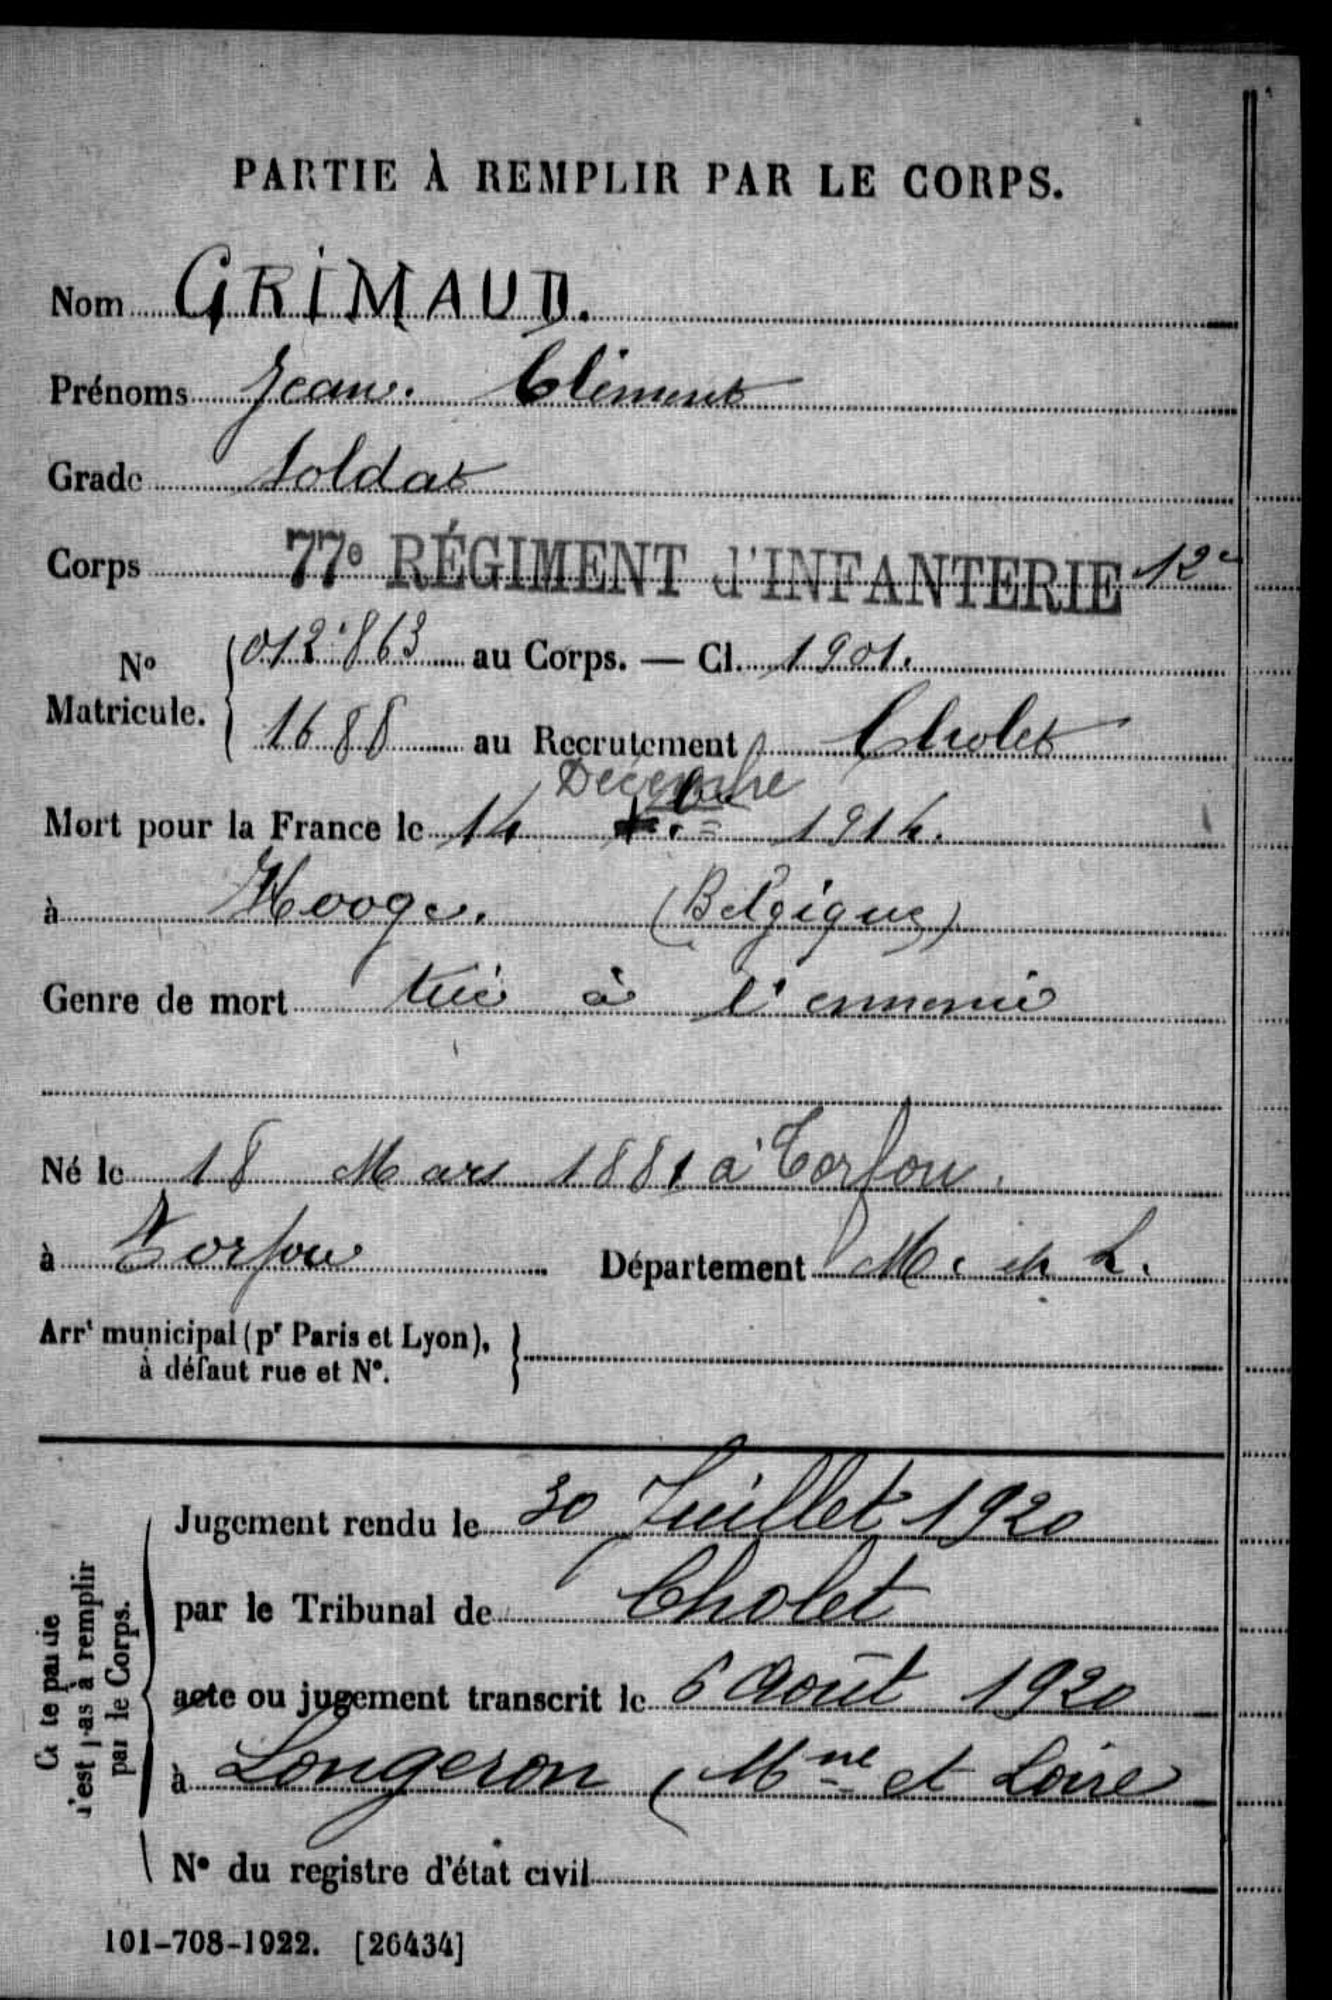 PARTIE À REMPLIR PAR LE CORPS.
Nom GRIMAUD.
Prénoms Jean. Clément
Grade Soldat
Corps 77e RÉGIMENT d'INFANTERIE 12e
No Matricule. { 012.863 au Corps. — Cl. 1901.
1688 au Recrutement Cholet
Décembre
Mort pour la France le 14 Xbre 1914.
à Hooge. (Belgique)
Genre de mort tué à l'ennemi
Né le 18 Mars 1881 à Torfou.
à Torfou Département M. et L.
Arrt municipal (pr Paris et Lyon),
à défaut rue et No.
Cette partie
n'est pas à remplir
par le Corps.
Jugement rendu le 30 Juillet 1920
par le Tribunal de Cholet
acte ou jugement transcrit le 6 Août 1920
à Longeron (Mne et Loire
No du registre d'état civil
101-708-1922. [26434]